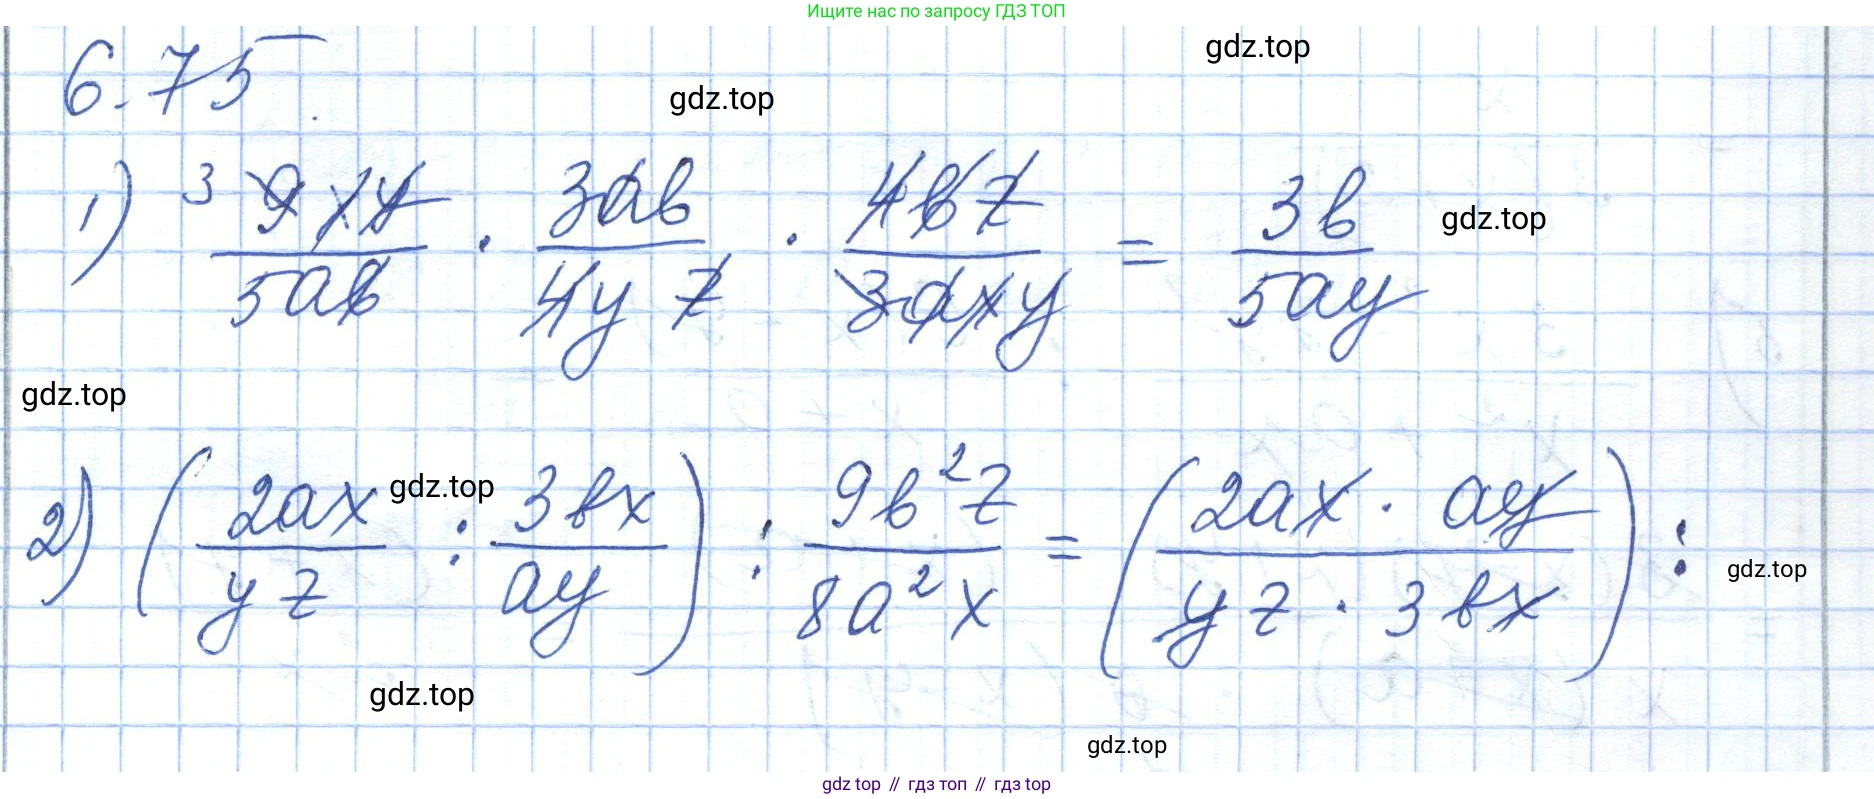 Ищите нас по запросу ГДЗ ТОП
gdz.top
6.75.
gdz.top
1) 3 9xy/5aв · 3aв/4yz · 4вz/3axy = 3в/5ay
gdz.top
gdz.top
2) (2ax/yz : 3вx/ay) : 9в²z/8a²x = (2ax · ay/yz · 3вx) :
gdz.top
gdz.top
gdz.top
gdz.top
gdz top // гдз топ // гдз top